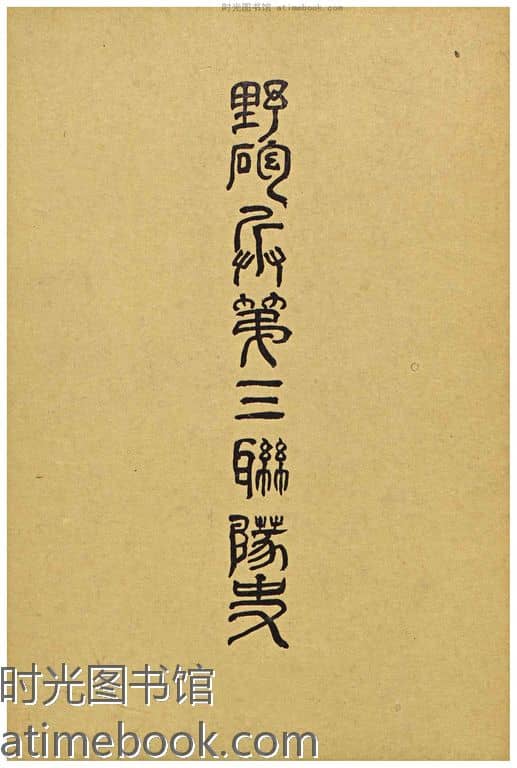 时光图书馆 atimebook.com
野砲兵第三聯隊史
时光图书馆
atimebook.com